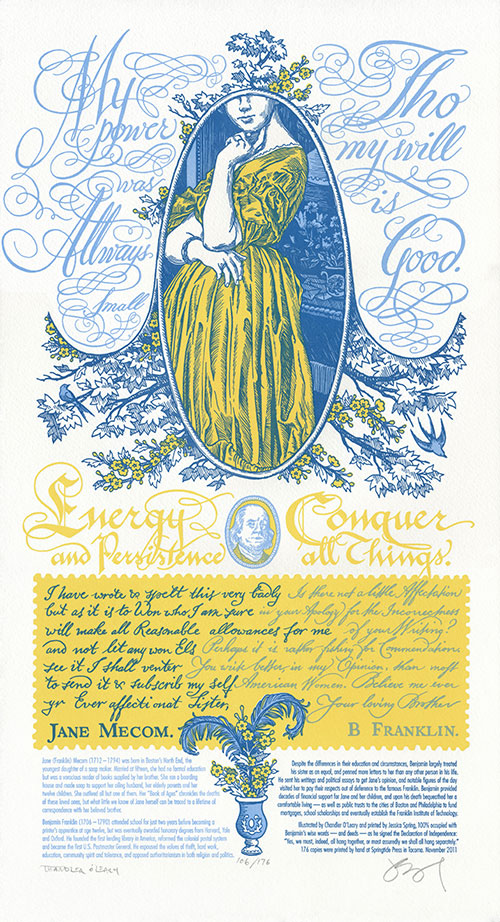 My
power
was
Allways
Small
Tho
my will
is
Good.
Energy
and Persistence
Conquer
all Things.
I have wrote & spellt this very badly
but as it is to Won who I am sure
will make all Reasonable allowances for me
and not let any won Els
see it I shall venter
to send it & subscrib my self
yr Ever affectionat Sister,
JANE MECOM.
Is there not a little Affectation
in your Apology for the Incorrectness
of your Writing?
Perhaps it is rather fishing for Commendation.
You write better, in my Opinion, than most
American Women. Believe me ever
Your loving Brother
B FRANKLIN.
Jane (Franklin) Mecom (1712–1794) was born in Boston's North End, the
youngest daughter of a soap maker. Married at fifteen, she had no formal education
but was a voracious reader of books supplied by her brother. She ran a boarding
house and made soap to support her ailing husband, her elderly parents and her
twelve children. She outlived all but one of them. Her "Book of Ages" chronicles the deaths
of these loved ones, but what little we know of Jane herself can be traced to a lifetime of
correspondence with her beloved brother.
Benjamin Franklin (1706–1790) attended school for just two years before becoming a
printer's apprentice at age twelve, but was eventually awarded honorary degrees from Harvard, Yale
and Oxford. He founded the first lending library in America, reformed the colonial postal system
and became the first U.S. Postmaster General. He espoused the values of thrift, hard work,
education, community spirit and tolerance, and opposed authoritarianism in both religion and politics.
Despite the differences in their education and circumstances, Benjamin largely treated
his sister as an equal, and penned more letters to her than any other person in his life.
He sent his writings and political essays to get Jane's opinion, and notable figures of the day
visited her to pay their respects out of deference to the famous Franklin. Benjamin provided
decades of financial support for Jane and her children, and upon his death bequeathed her a
comfortable living — as well as public trusts to the cities of Boston and Philadelphia to fund
mortgages, school scholarships and eventually establish the Franklin Institute of Technology.
Illustrated by Chandler O'Leary and printed by Jessica Spring, 100% occupied with
Benjamin's wise words — and deeds — as he signed the Declaration of Independence:
"Yes, we must, indeed, all hang together, or most assuredly we shall all hang separately."
176 copies were printed by hand at Springtide Press in Tacoma. November 2011
CHANDLER O'LEARY
106/176